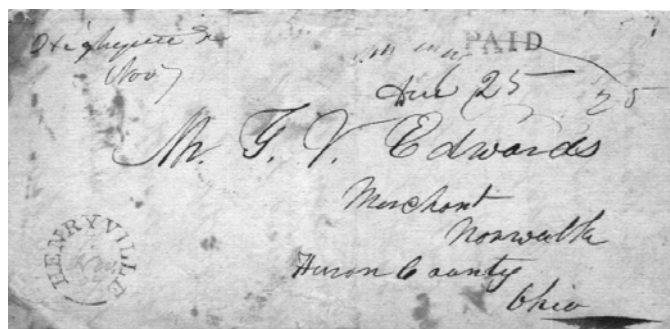 Nov 7
PAID
Due 25
25
Mr. G. V. Edwards
Merchant
Norwalk
Huron County
Ohio
HENRYVILLE